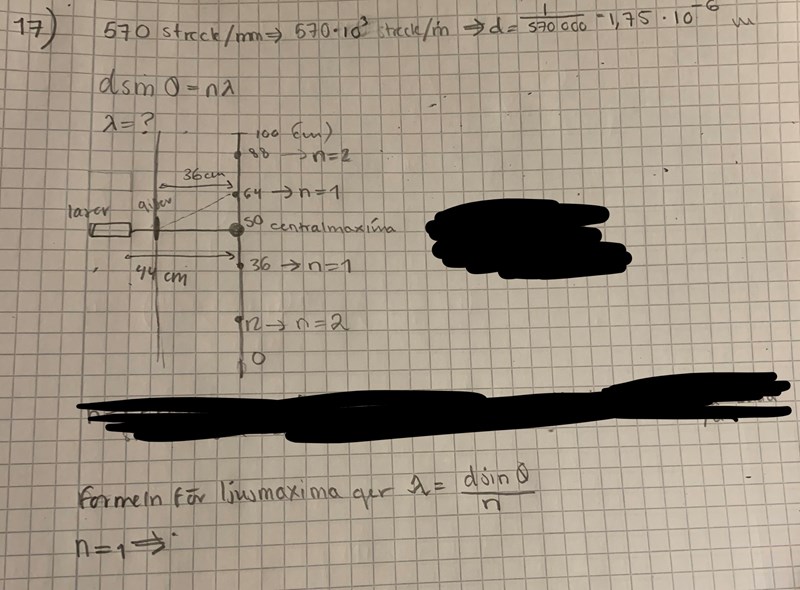 17) 570 streck/mm ⇒ 570·10³ streck/m ⇒ d = 1/570 000 = 1,75 · 10⁻⁶ m
d sin θ = nλ
λ = ?
100 (cm)
88 → n=2
36 cm
64 → n=1
laser
50 centralmaxima
36 → n=1
44 cm
12 → n=2
0
Formeln för ljusmaxima ger λ = d sin θ / n
n = 1 ⇒